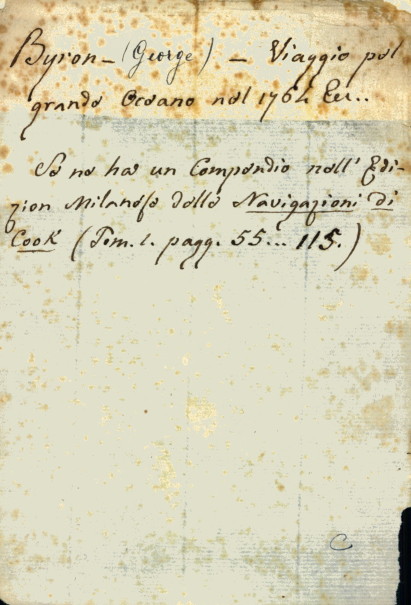 Byron - (George) - Viaggio pel
grande Oceano nel 1764 Ec..
Se ne ha un Compendio nell' Edi-
zion Milanese delle Navigazioni di
Cook (Tom. 1. pagg. 55... 115.)
C